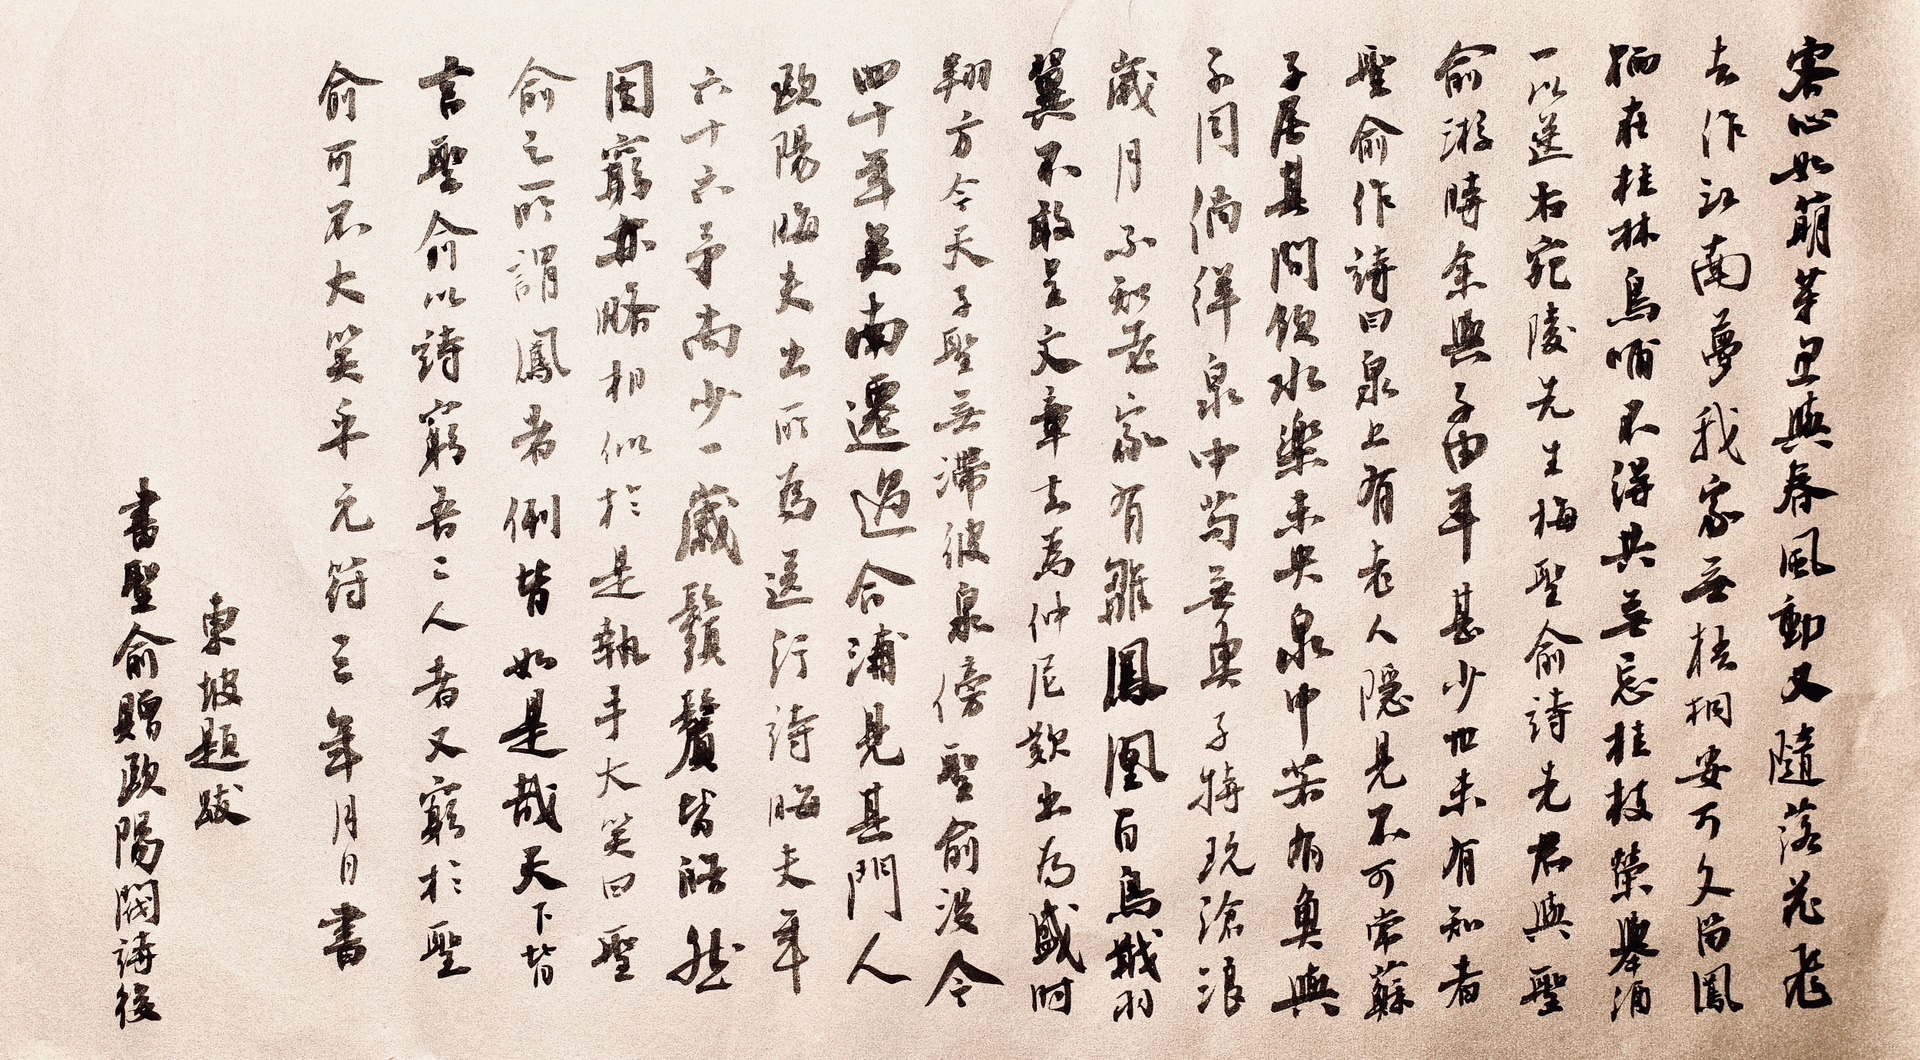 客心如萌芽忽與春風動又隨落花飛
去作江南夢我家無梧桐安可久留鳳
栖在桂林烏哺不得共無忘桂枝榮舉酒
一以送右宛陵先生梅聖俞詩先君與聖
俞游時余與子由年甚少世未有知者
聖俞作詩曰泉上有老人隱見不可常蘇
子居其間飲水樂未央泉中若有魚與
子同徜徉泉中苟無魚子特玩滄浪
歲月不知老家有雛鳳凰百鳥戢羽
翼不敢呈文章去為仲尼歎出為盛時
翔方今天子聖無滯彼泉傍聖俞沒今
四十年矣南遷過合浦見其門人
歐陽晦夫出所為送行詩晦夫年
六十六予尚少一歲鬚鬢皆皓然
固窮亦略相似於是執手大笑曰聖
俞之所謂鳳者例皆如是哉天下皆
言聖俞以詩窮吾二人者又窮於聖
俞可不大笑乎元符三年月日書
東坡題跋
書聖俞贈歐陽閥詩後